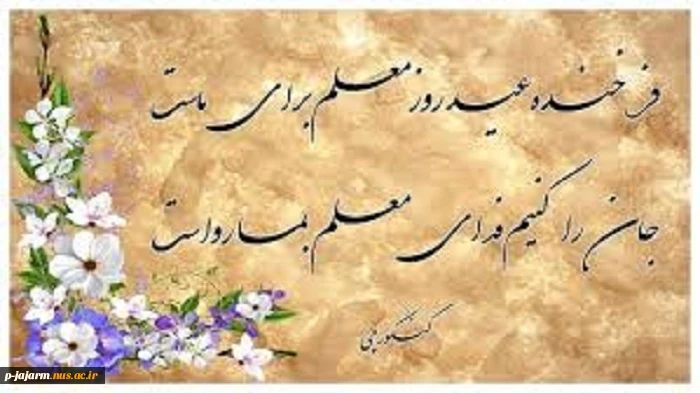 فرخنده عید روز معلم برای ماست
جان را کنیم فدای معلم بما رواست
کنگورچی
p-jajarm.nus.ac.ir